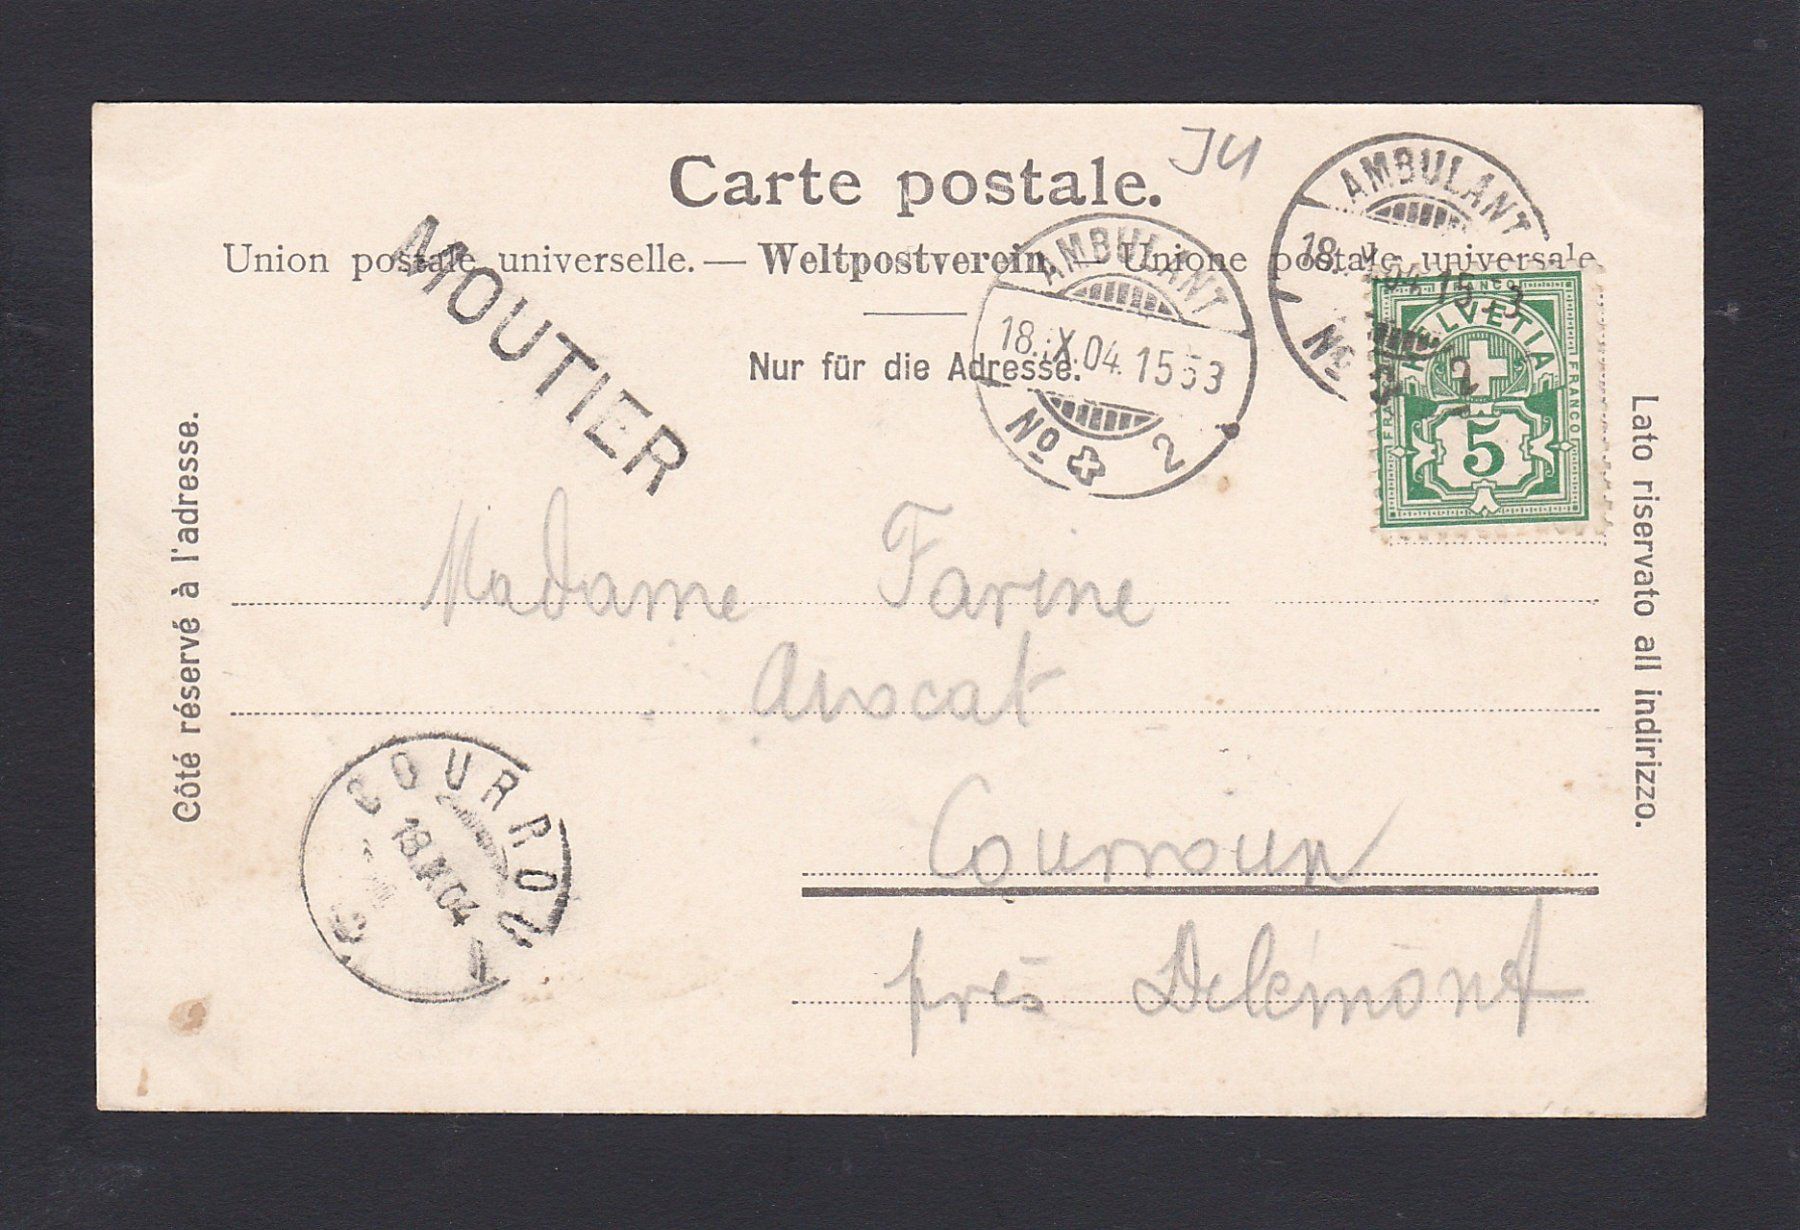 Carte postale.
JU
Union postale universelle. — Weltpostverein — Unione postale universale
MOUTIER
Nur für die Adresse.
AMBULANT
18.IX.04.1553
No 2
AMBULANT
18. 04 15 3
No 2
FRANCO
HELVETIA
FRANCO
FRA
5
Côté réservé à l'adresse.
Lato riservato all indirizzo.
Madame Farine
Avocat
Courroux
près Delémont
COURROU
18.IX.04